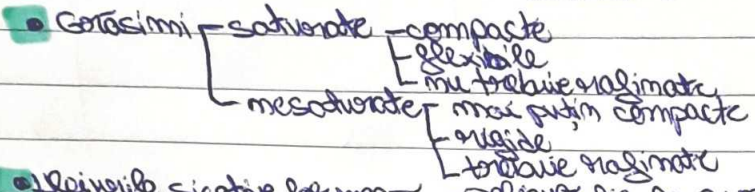 • Grăsimi - saturate - compacte
- flexibile
- nu trebuie rafinate
- nesaturate - mai puțin compacte
- rigide
- trebuie rafinate